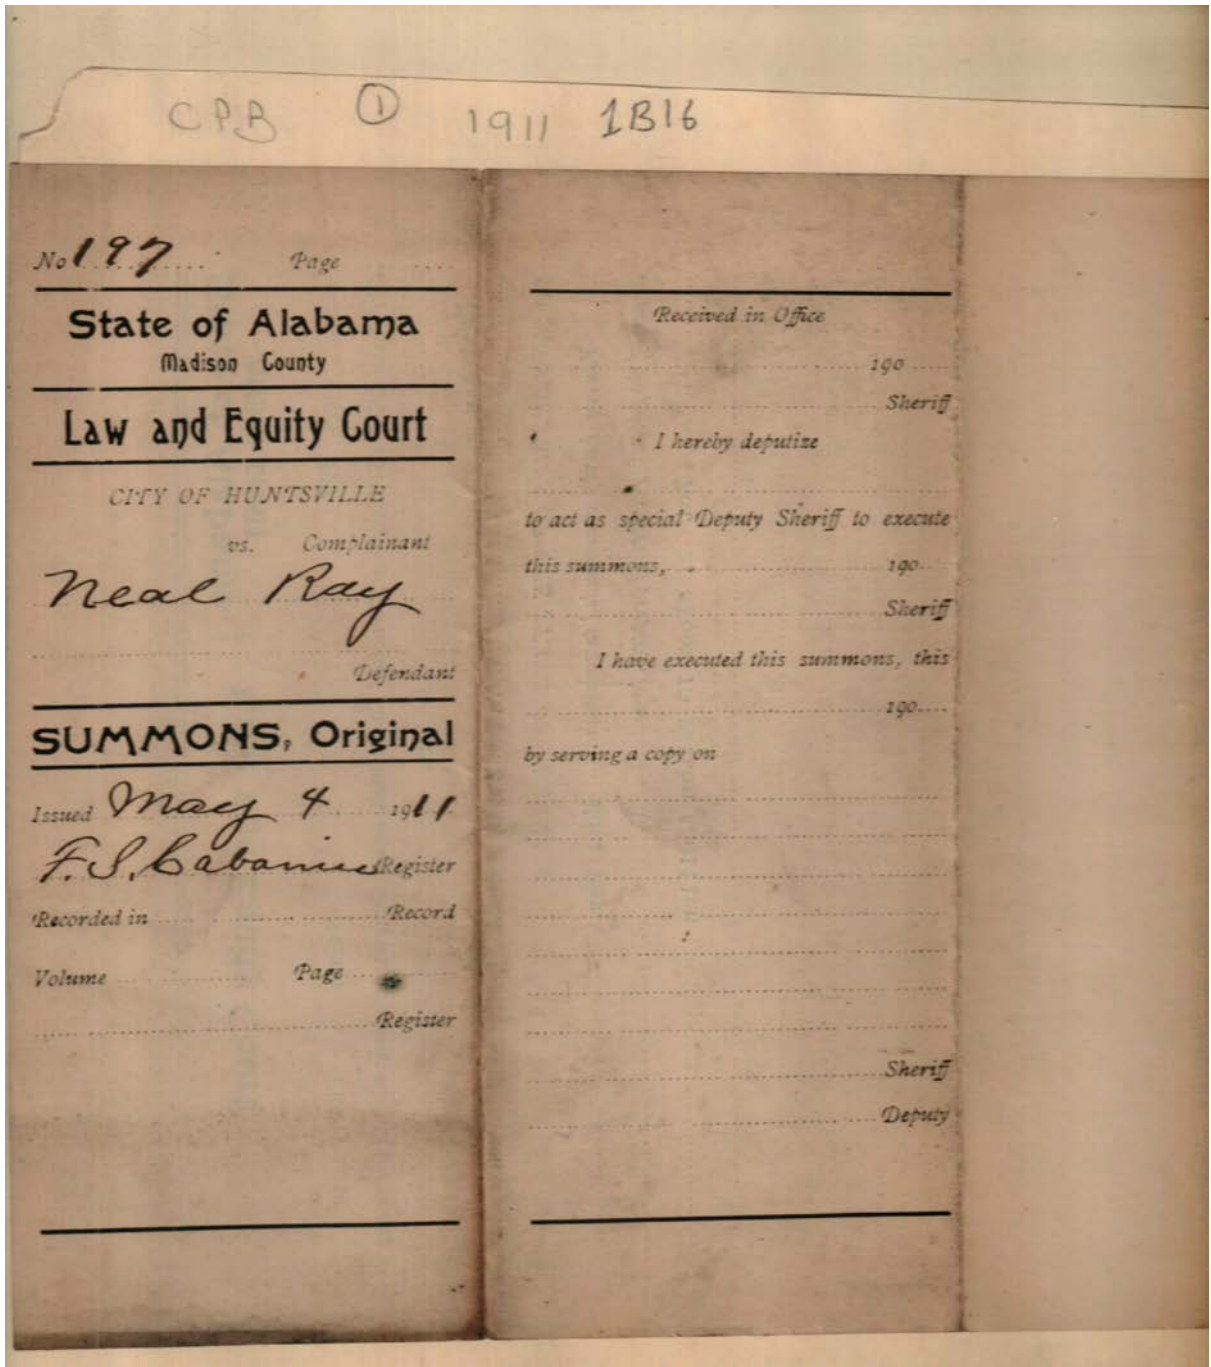 CPB ① 1911 1B16
No 197 Page
State of Alabama
Madison County
Law and Equity Court
CITY OF HUNTSVILLE
vs. Complainant
Neal Ray
Defendant
SUMMONS, Original
Issued May 4 1911
F. S. Cabaniss Register
Recorded in Record
Volume Page
Register
Received in Office
190
Sheriff
I hereby deputize
to act as special Deputy Sheriff to execute
this summons, 190
Sheriff
I have executed this summons, this
190
by serving a copy on
Sheriff
Deputy